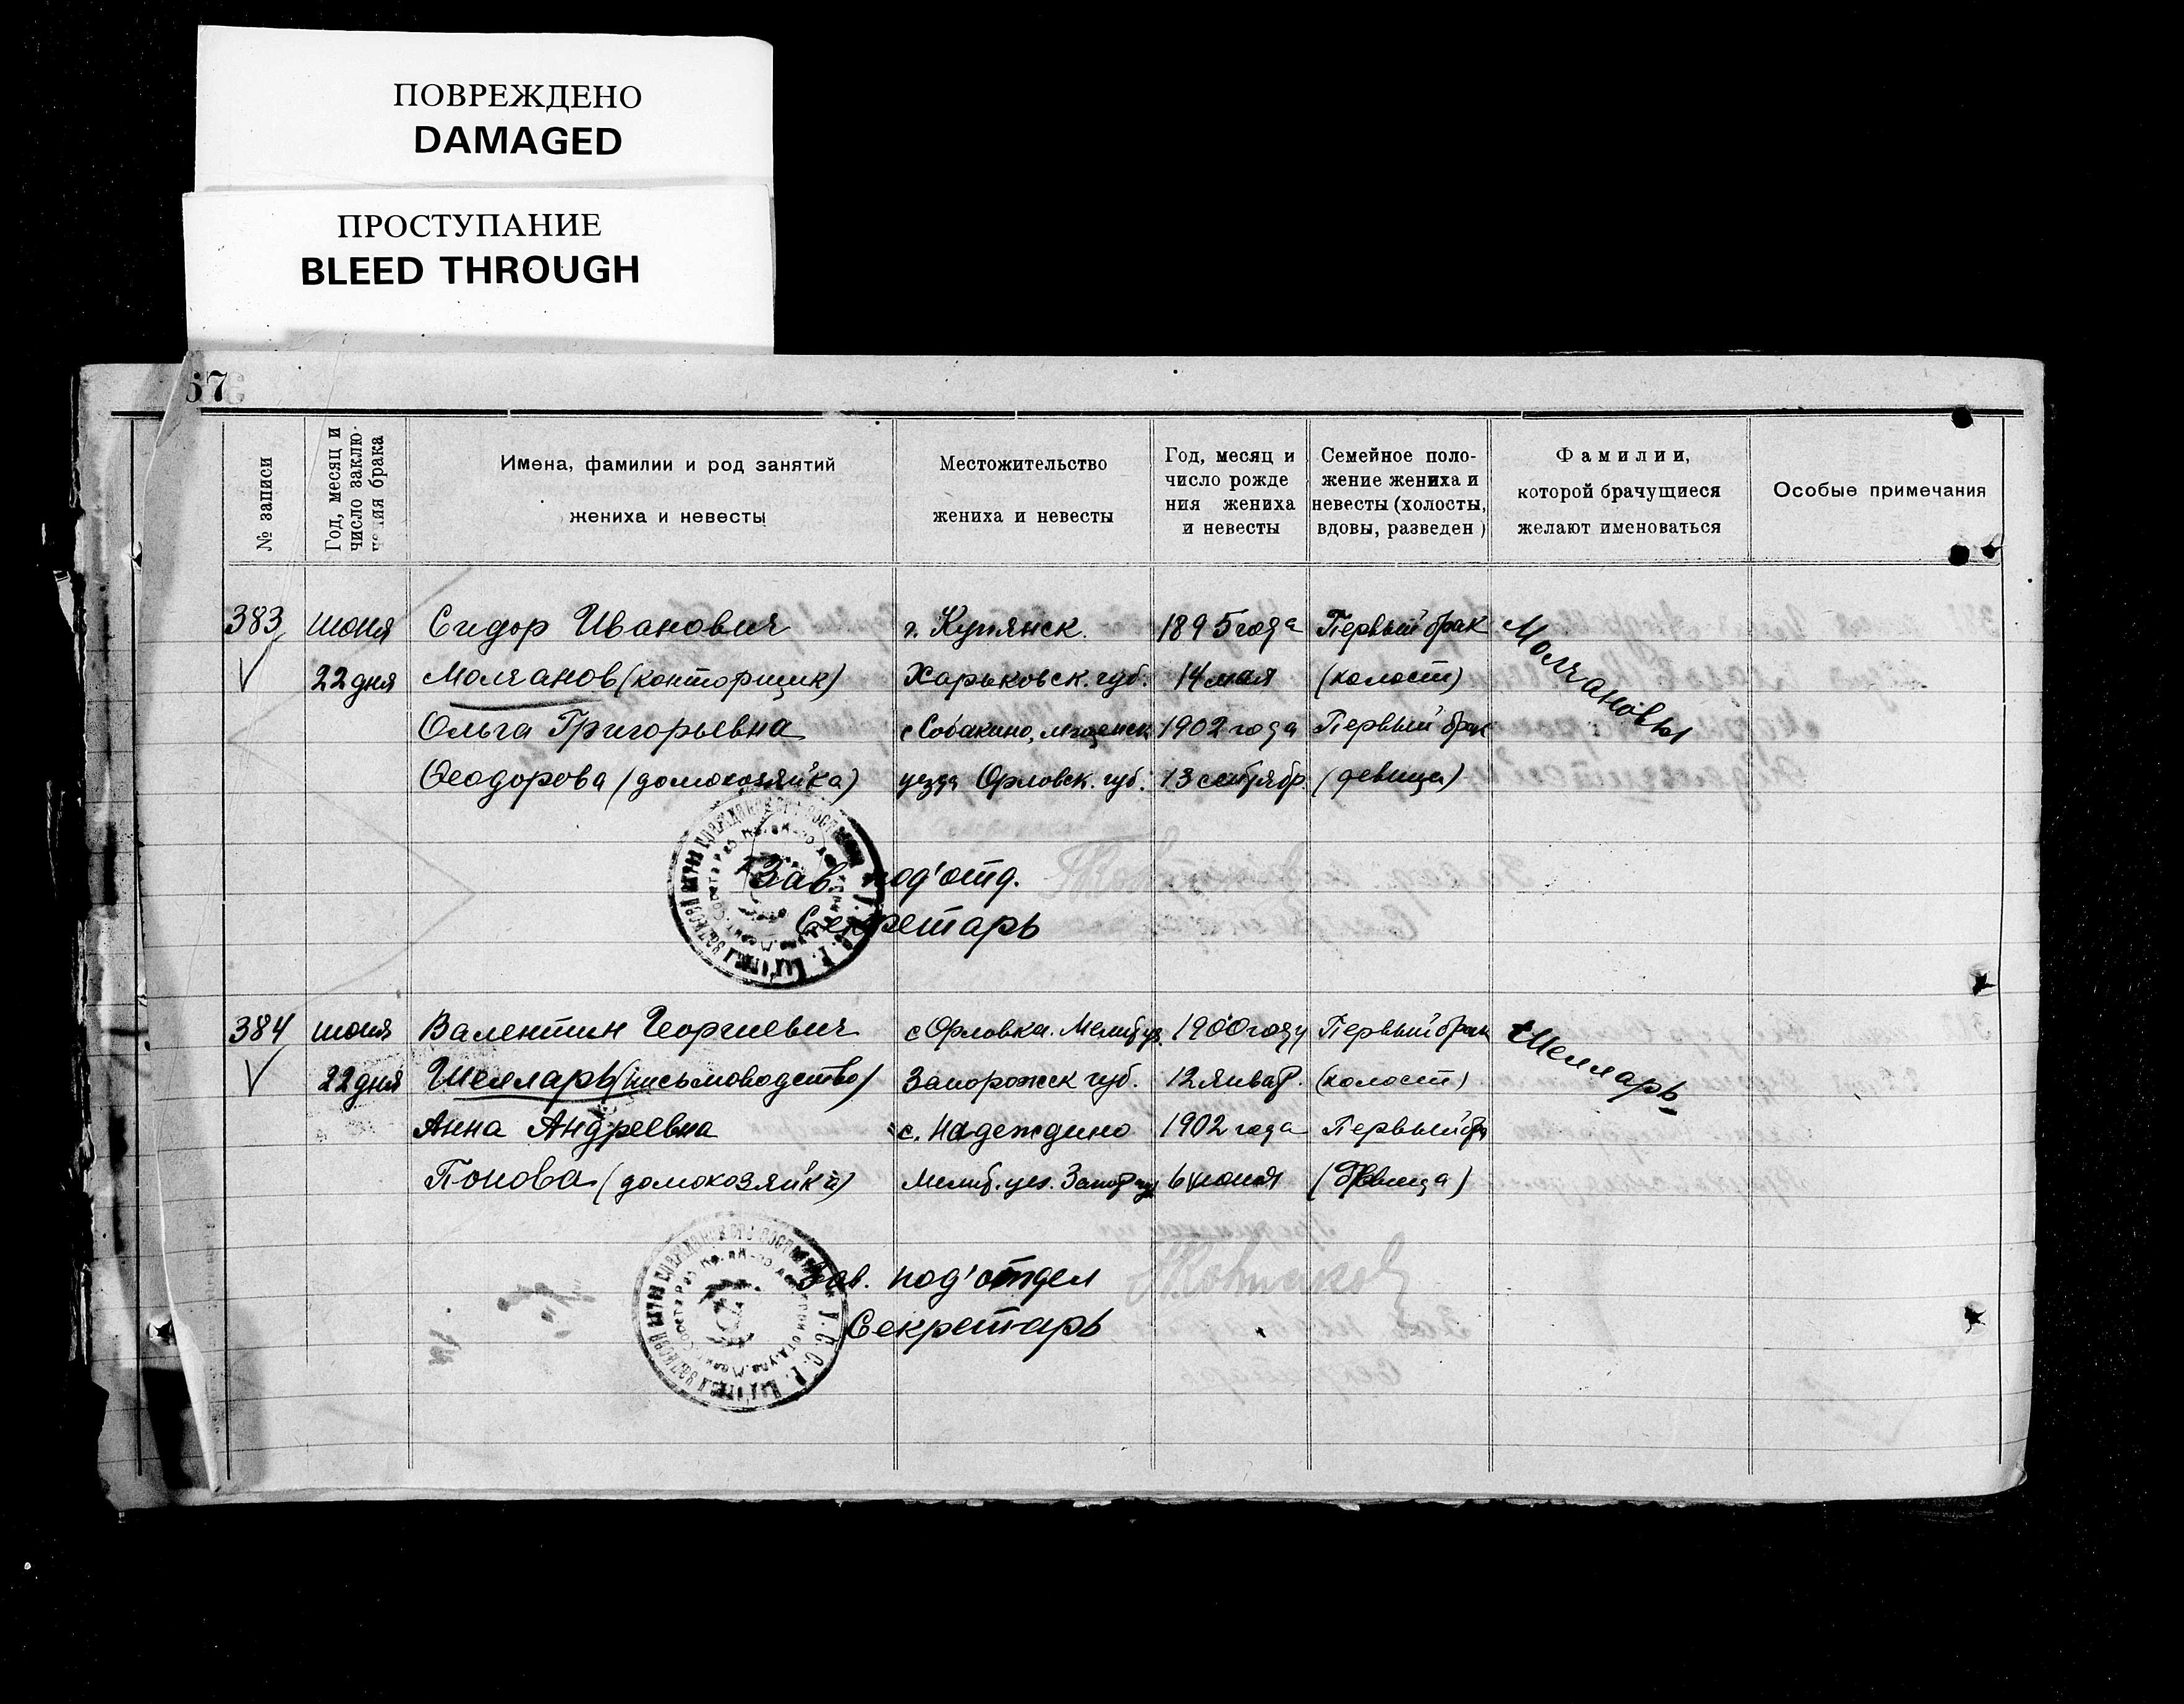 ПОВРЕЖДЕНО
DAMAGED
ПРОСТУПАНИЕ
BLEED THROUGH
67
№ записи
Год, месяц и число заклю- чения брака
Имена, фамилии и род занятий жениха и невесты
Местожительство жениха и невесты
Год, месяц и число рожде ния жениха и невесты
Семейное поло- жение жениха и невесты (холосты, вдовы, разведен)
Фамилии, которой брачущиеся желают именоваться
Особые примечания
383 июня Сидор Иванович г. Купянск. 1895 года Первый брак Молчановы
22 дня Молчанов (конторщик) Харьковск. губ. 14 мая (холост)
Ольга Григорьевна с Собакино, Мценск 1902 года Первый брак
Феодорова (домохозяйка) уезда Орловск. губ. 13 сентябр. (девица)
Зав. под'отд.
Секретарь
384 июня Валентин Георгиевич с Орловка. Мелит уз. 1900 году Первый брак Шелларь
22 дня Шелларь (письмоводство) Запорожск губ. 12 Январ. (холост)
Анна Андреевна с. Надеждино 1902 года Первый бр
Попова (домохозяйка) Мелит. уез. Запор губ 6 июня (девица)
Зав. под'отдел
Секретарь